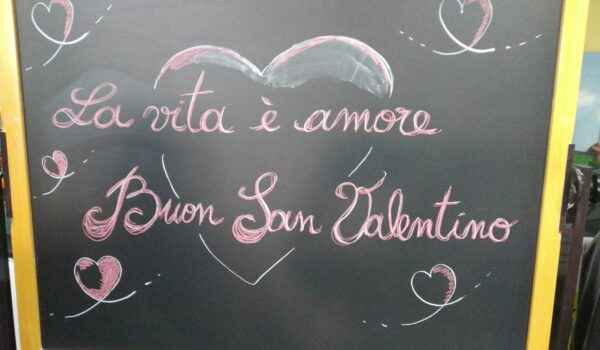 La vita è amore
Buon San Valentino